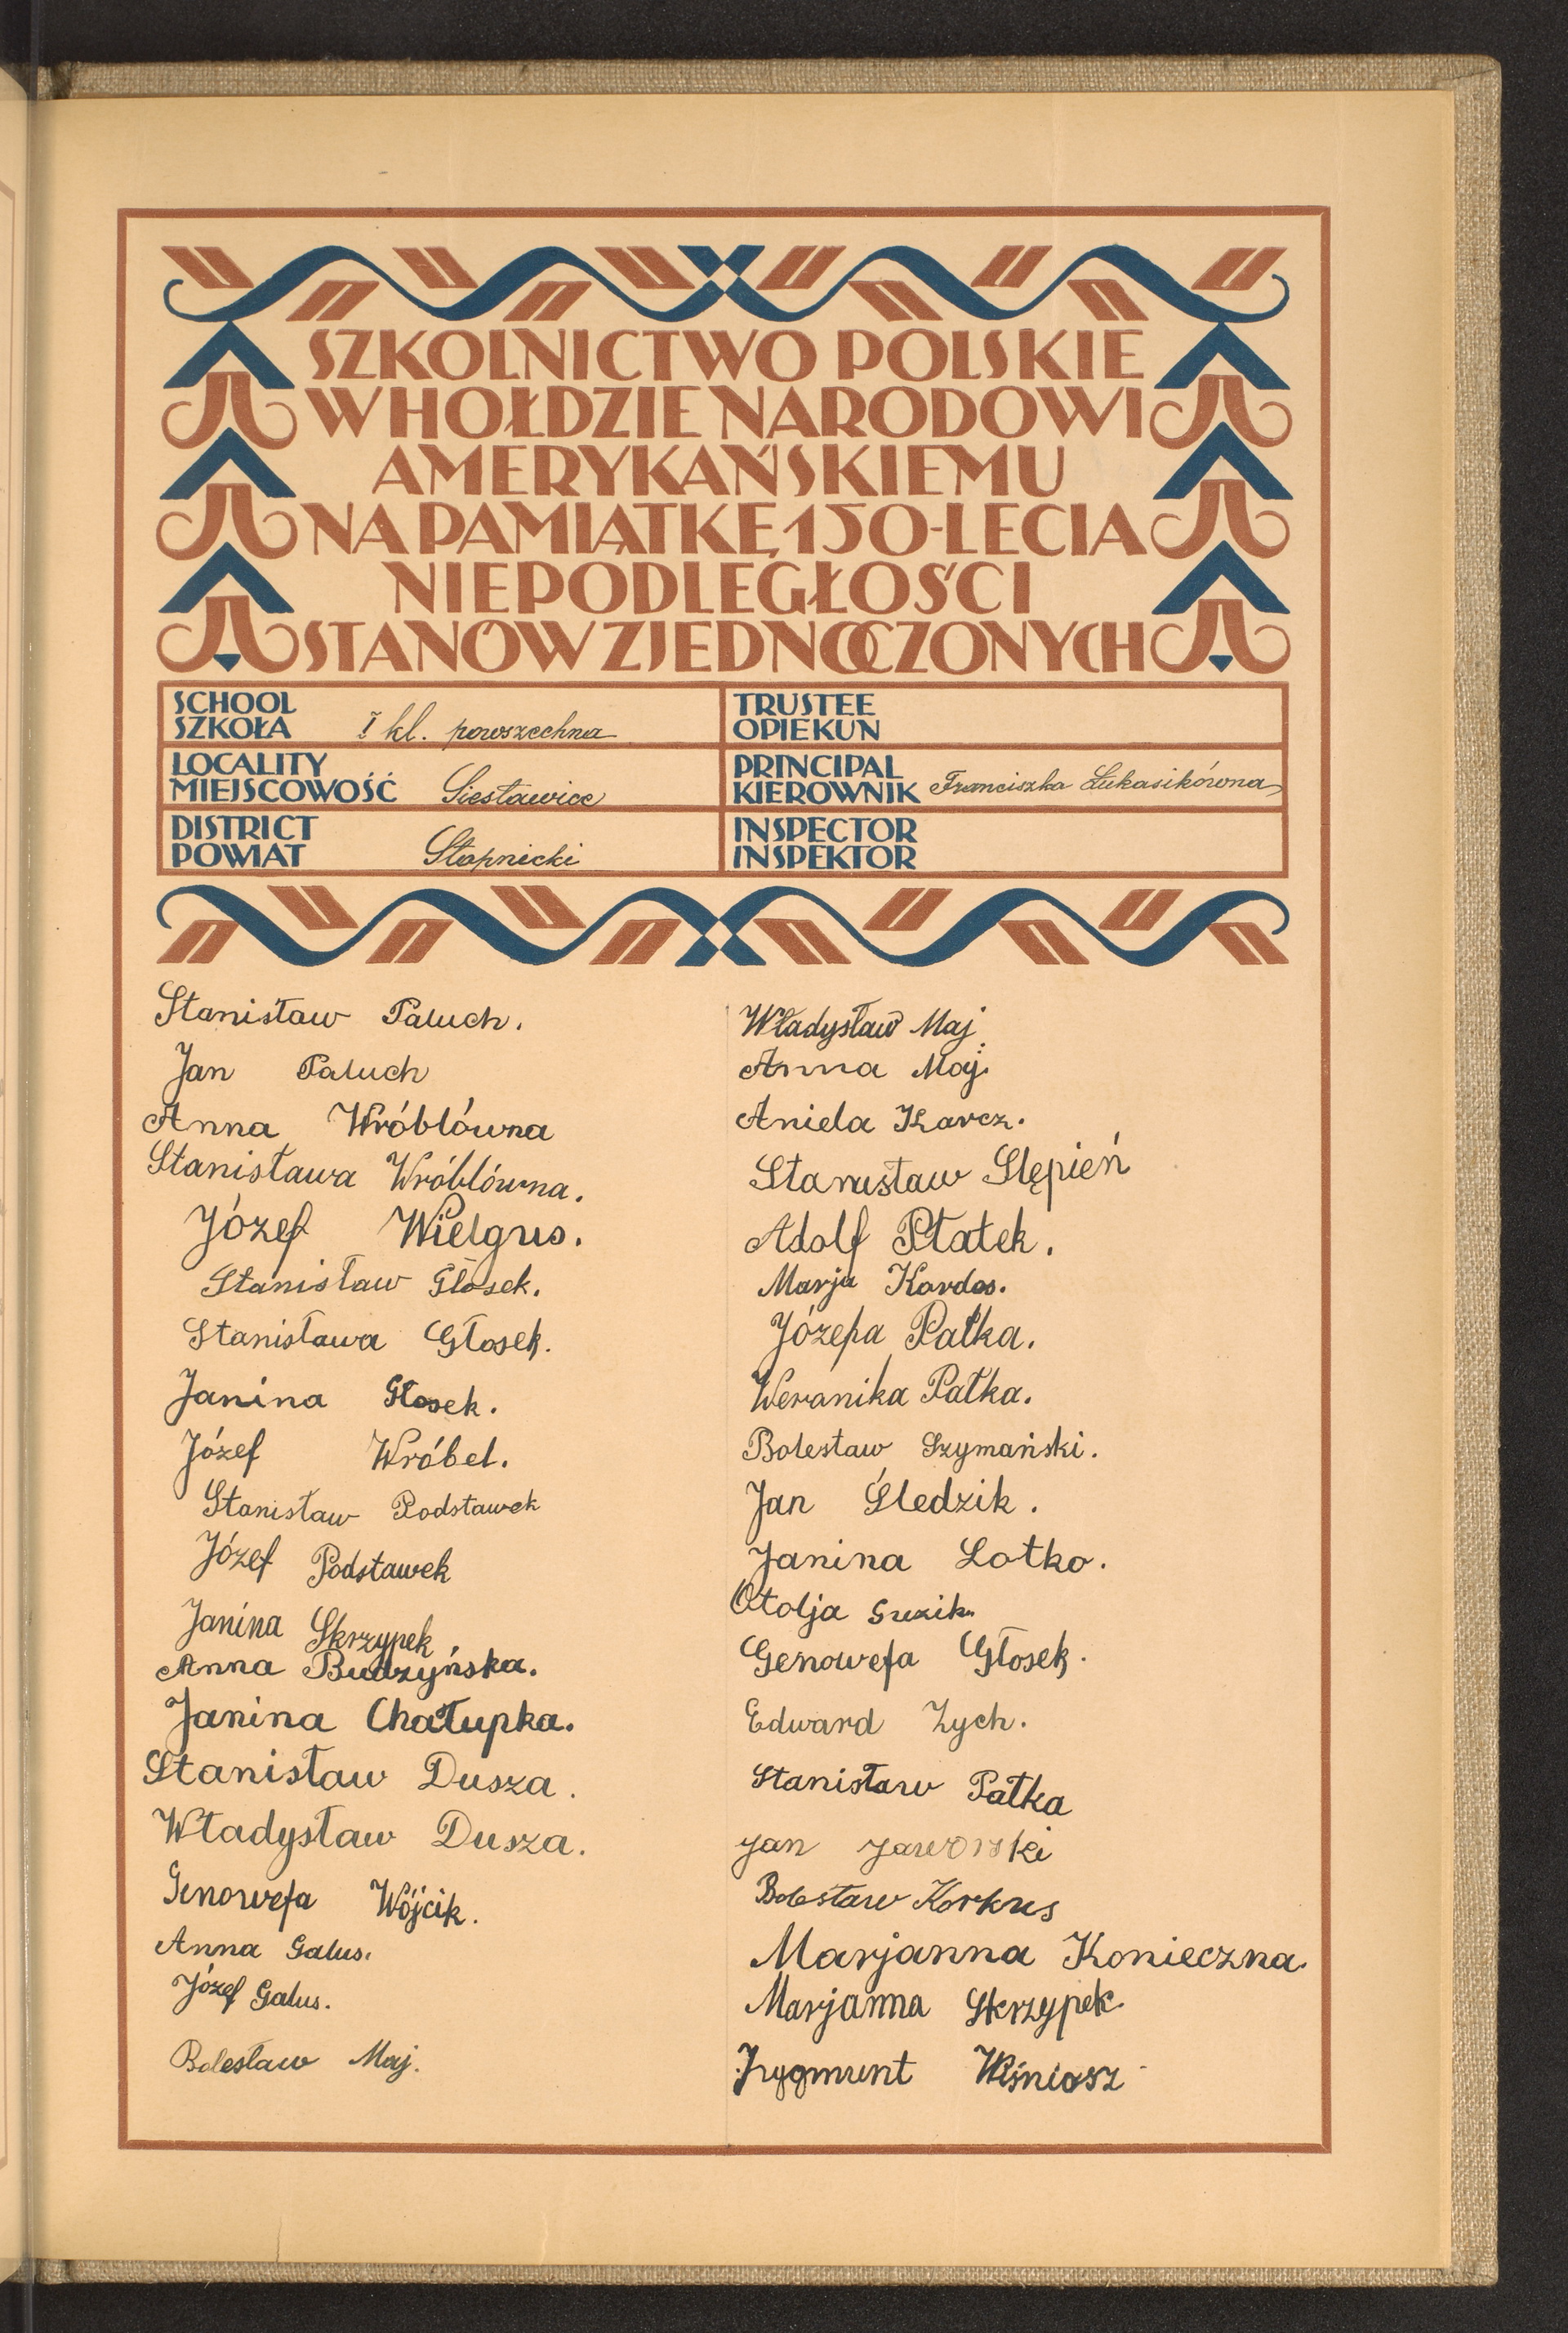 SZKOLNICTWO POLSKIE
W HOŁDZIE NARODOWI
AMERYKAŃSKIEMU
NA PAMIĄTKĘ 150-LECIA
NIEPODLEGŁOŚCI
STANÓW ZJEDNOCZONYCH
SCHOOL
SZKOŁA I kl. powszechna
LOCALITY
MIEJSCOWOŚĆ Siesławice
DISTRICT
POWIAT Stopnicki
TRUSTEE
OPIEKUN
PRINCIPAL
KIEROWNIK Franciszka Łukasikówna
INSPECTOR
INSPEKTOR
Stanisław Paluch.
Jan Paluch
Anna Wróblówna
Stanisława Wróblówna.
Józef Wielgus.
Stanisław Głosek.
Stanisława Głosek.
Janina Głosek.
Józef Wróbel.
Stanisław Podstawek
Józef Podstawek
Janina Skrzypek
Anna Budzyńska.
Janina Chałupka.
Stanisław Dusza.
Władysław Dusza.
Genowefa Wójcik.
Anna Galus.
Józef Galus.
Bolesław Maj.
Władysław Maj.
Anna Maj.
Aniela Karcz.
Stanisław Stępień
Adolf Płatek.
Marja Kardos.
Józefa Pałka.
Weranika Pałka.
Bolesław Szymański.
Jan Śledzik.
Janina Lotko.
Otolja Guzik.
Genowefa Głosek.
Edward Zych.
Stanisław Pałka
Jan Jaworski
Bolesław Korkus
Marjanna Konieczna.
Marjanna Skrzypek.
Zygmunt Wiśniosz